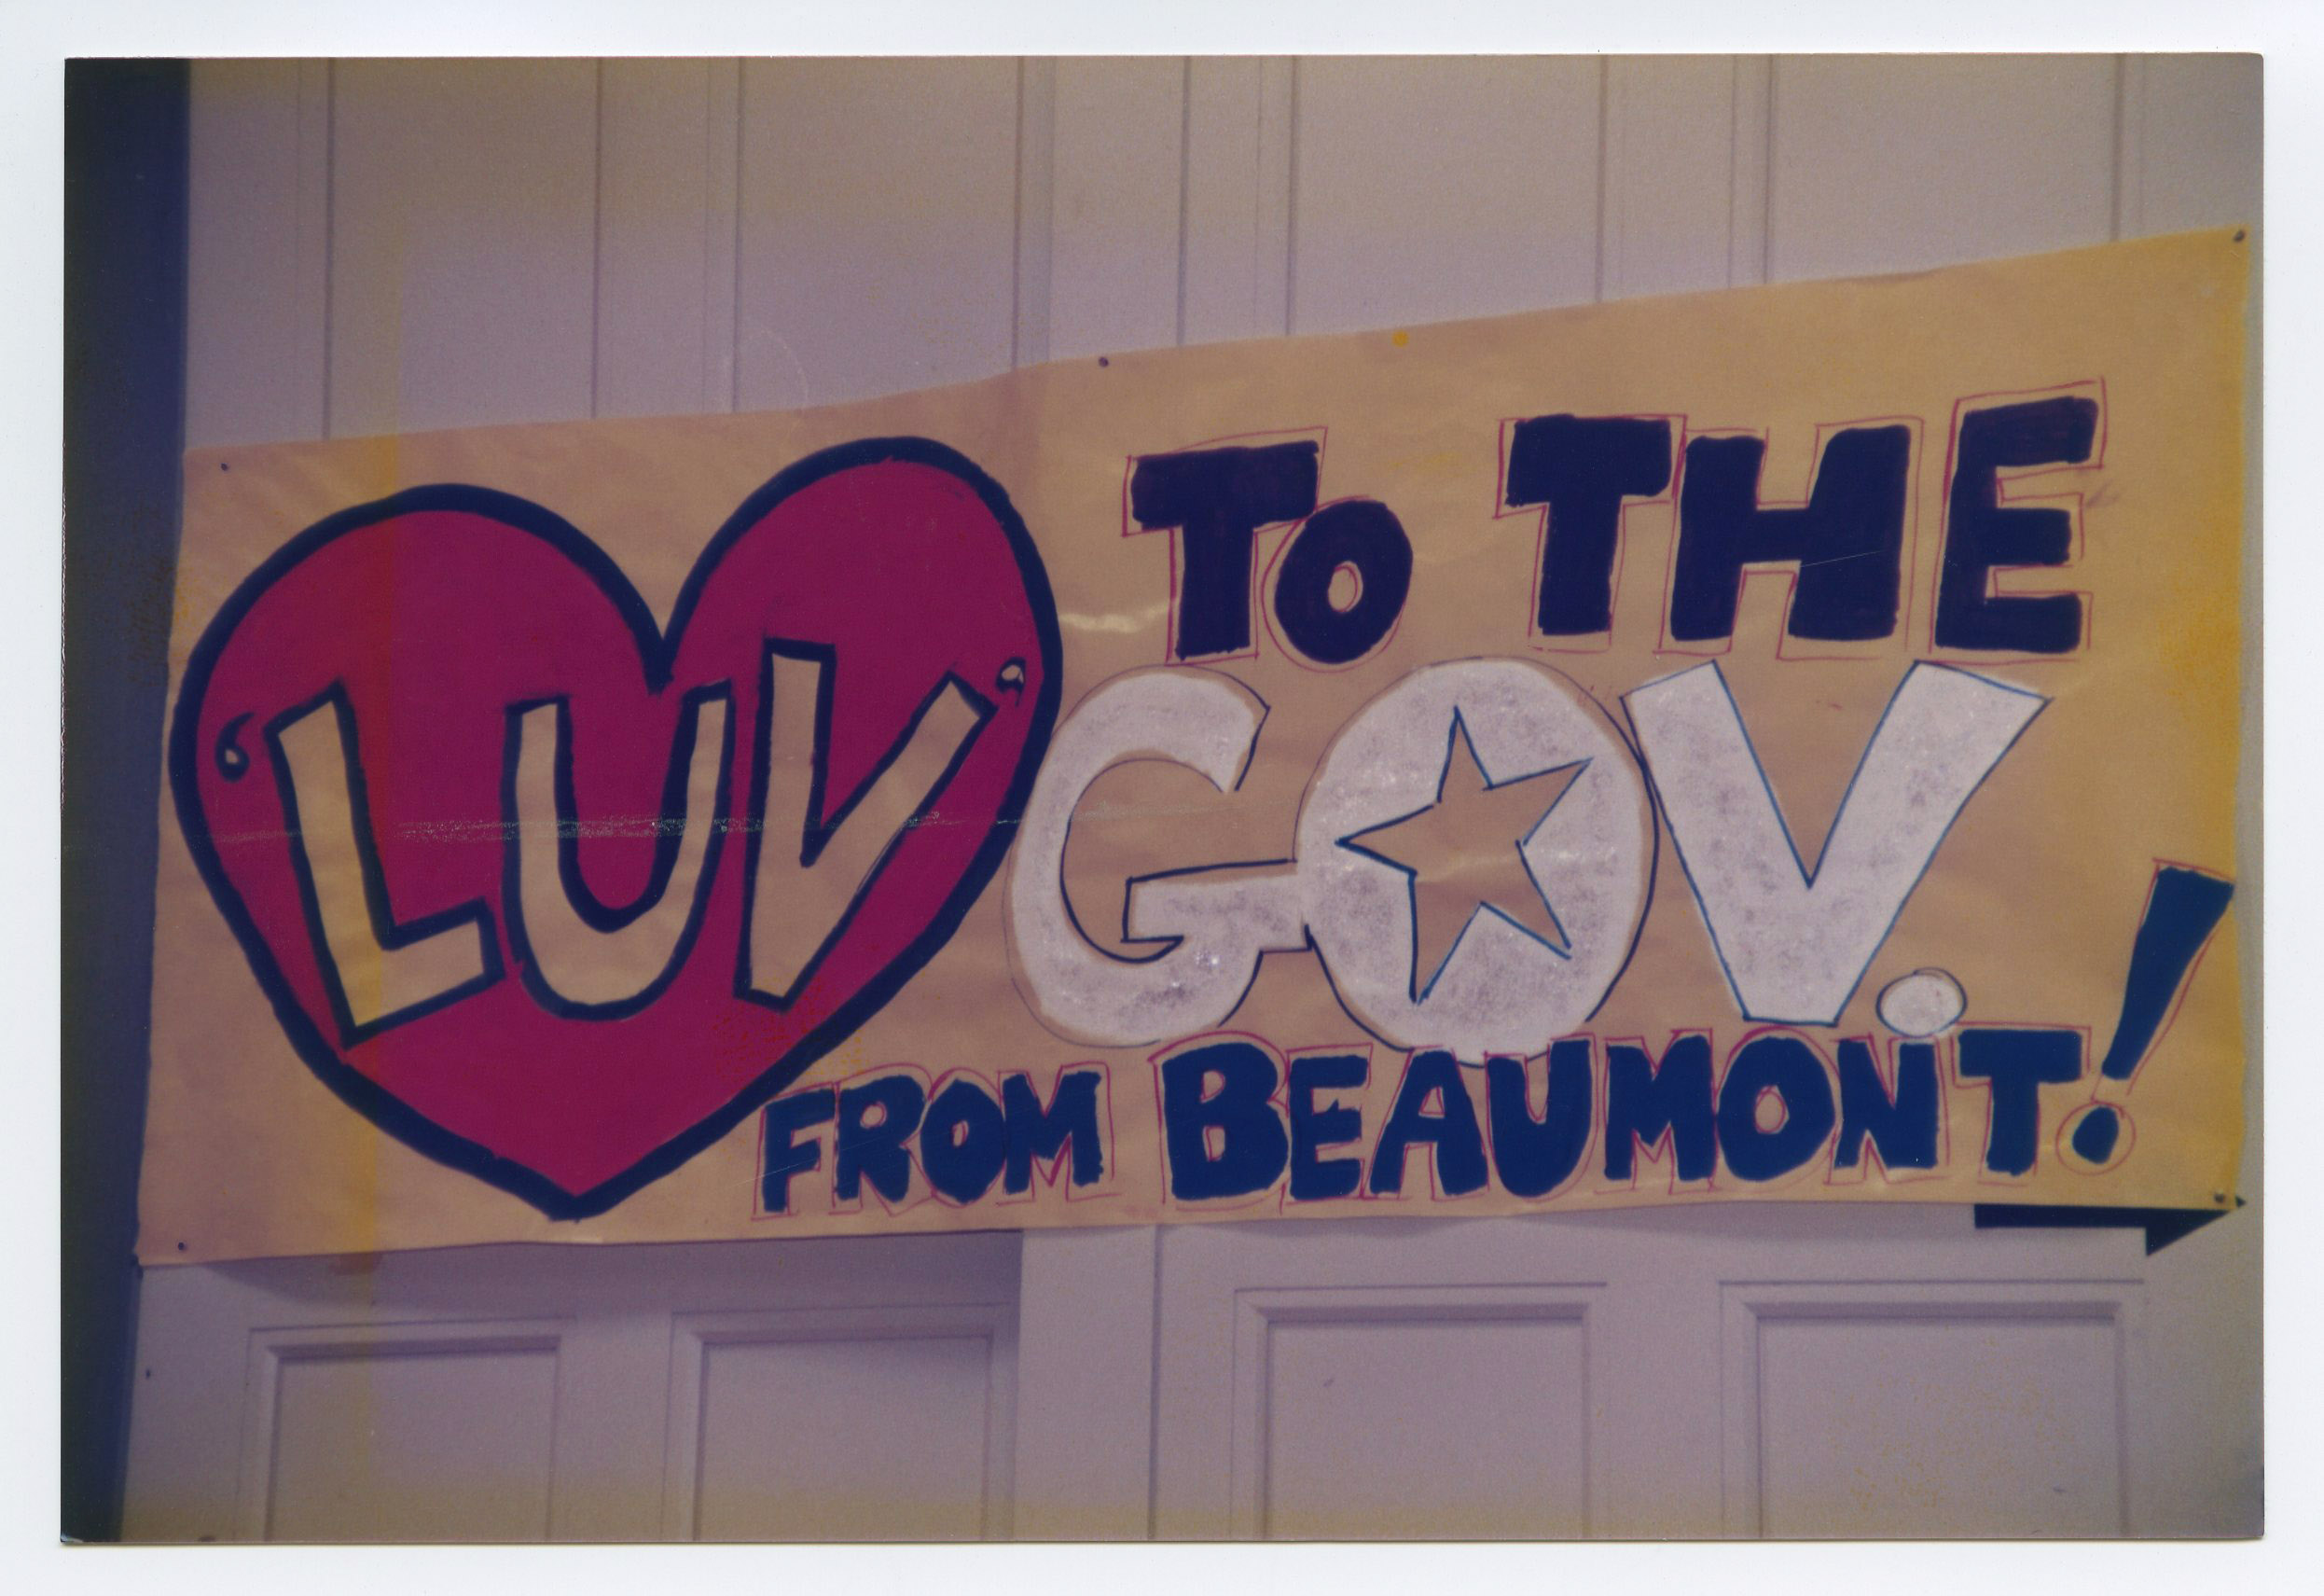 ‘LUV’
TO THE
GOV.
FROM BEAUMONT!